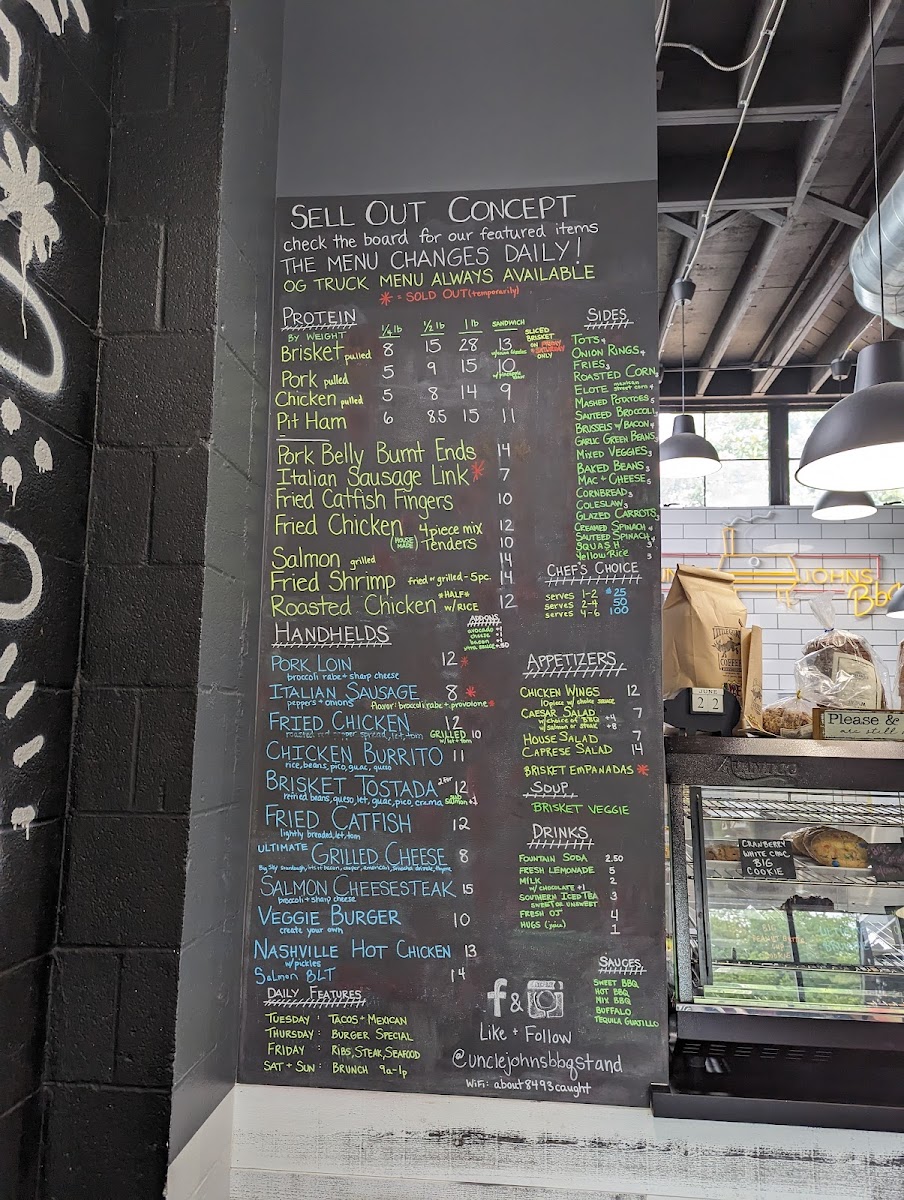 SELL OUT CONCEPT
check the board for our featured items
THE MENU CHANGES DAILY!
OG TRUCK MENU ALWAYS AVAILABLE
* = SOLD OUT (temporarily)
PROTEIN
BY WEIGHT
1/4 lb 1/2 lb 1 lb SANDWICH
Brisket pulled 8 15 28 13
SLICED BRISKET ON FRIDAY & SATURDAY ONLY
Pork pulled 5 9 15 10
Chicken pulled 5 8 14 9
Pit Ham 6 8.5 15 11
Pork Belly Burnt Ends 14
Italian Sausage Link * 7
Fried Catfish Fingers 10
Fried Chicken HOUSE MADE 4 piece mix 12
Tenders 10
Salmon grilled 14
Fried Shrimp fried or grilled - 5pc. 14
Roasted Chicken *HALF* w/RICE 12
SIDES
TOTS 4
ONION RINGS 4
FRIES 3
ROASTED CORN 4
ELOTE mexican street corn 4
MASHED POTATOES 5
SAUTEED BROCCOLI
BRUSSELS w/ BACON 4
GARLIC GREEN BEANS
MIXED VEGGIES 3
BAKED BEANS 3
MAC + CHEESE 5
CORNBREAD 3
COLESLAW 3
GLAZED CARROTS
CREAMED SPINACH 4
SAUTEED SPINACH 4
SQUASH 3
Yellow Rice 3
CHEF'S CHOICE
serves 1-2 $25
serves 2-4 50
serves 4-6 100
HANDHELDS
ADDONS
avocado +1
cheese +1
bacon +1
xtra sauce +.50
PORK LOIN 12 *
broccoli rabe + sharp cheese
ITALIAN SAUSAGE 8 *
peppers + onions
flavor: broccoli rabe + provolone *
FRIED CHICKEN 12
roasted red pepper spread, let, tom
GRILLED 10
w/ let + tom
CHICKEN BURRITO 11
rice, beans, pico, guac, queso
BRISKET TOSTADA 2 for 12
refried beans, queso, let, guac, pico, crema
SUB Salmon +1
FRIED CATFISH 12
lightly breaded, let, tom
ULTIMATE GRILLED CHEESE 8
SALMON CHEESESTEAK 15
broccoli + sharp cheese
VEGGIE BURGER 10
create your own
NASHVILLE HOT CHICKEN 13
w/ pickles
Salmon BLT 14
APPETIZERS
CHICKEN WINGS 12
10 piece w/ choice sauce
CAESAR SALAD 7
w/ choice of BBQ +4
w/ salmon or steak +8
HOUSE SALAD 7
CAPRESE SALAD 14
BRISKET EMPANADAS *
SOUP
BRISKET VEGGIE
DRINKS
FOUNTAIN SODA 2.50
FRESH LEMONADE 5
MILK 2
w/ CHOCOLATE +1
SOUTHERN ICED TEA 3
SWEET OR UNSWEET
FRESH OJ 4
HUGS (juice) 1
SAUCES
SWEET BBQ
HOT BBQ
MIX BBQ
BUFFALO
TEQUILA GUAJILLO
DAILY FEATURES
TUESDAY : TACOS + MEXICAN
THURSDAY : BURGER SPECIAL
FRIDAY : RIBS, STEAK, SEAFOOD
SAT + SUN : BRUNCH 9a-1p
f &
Like + Follow
@unclejohnsbbqstand
WiFi: about8493caught
JOHNS
BBQ
COFFEE
JUNE
2 2
Please &
are still
CRANBERRY
WHITE CHOC
BIG
COOKIE